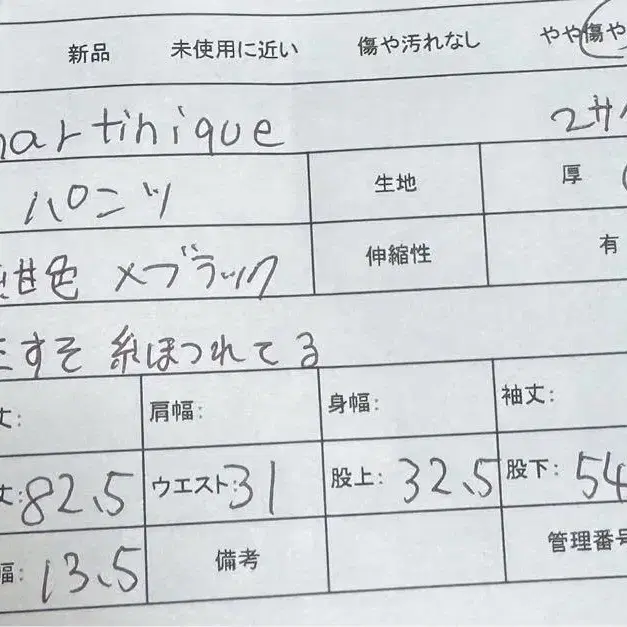 新品 未使用に近い 傷や汚れなし やや傷や
martinique 2サイ
パンツ 生地 厚
紺色×ブラック 伸縮性 有
すそ 糸ほつれてる
丈: 肩幅: 身幅: 袖丈:
丈:82.5 ウエスト:31 股上:32.5 股下:54
幅:13.5 備考 管理番号